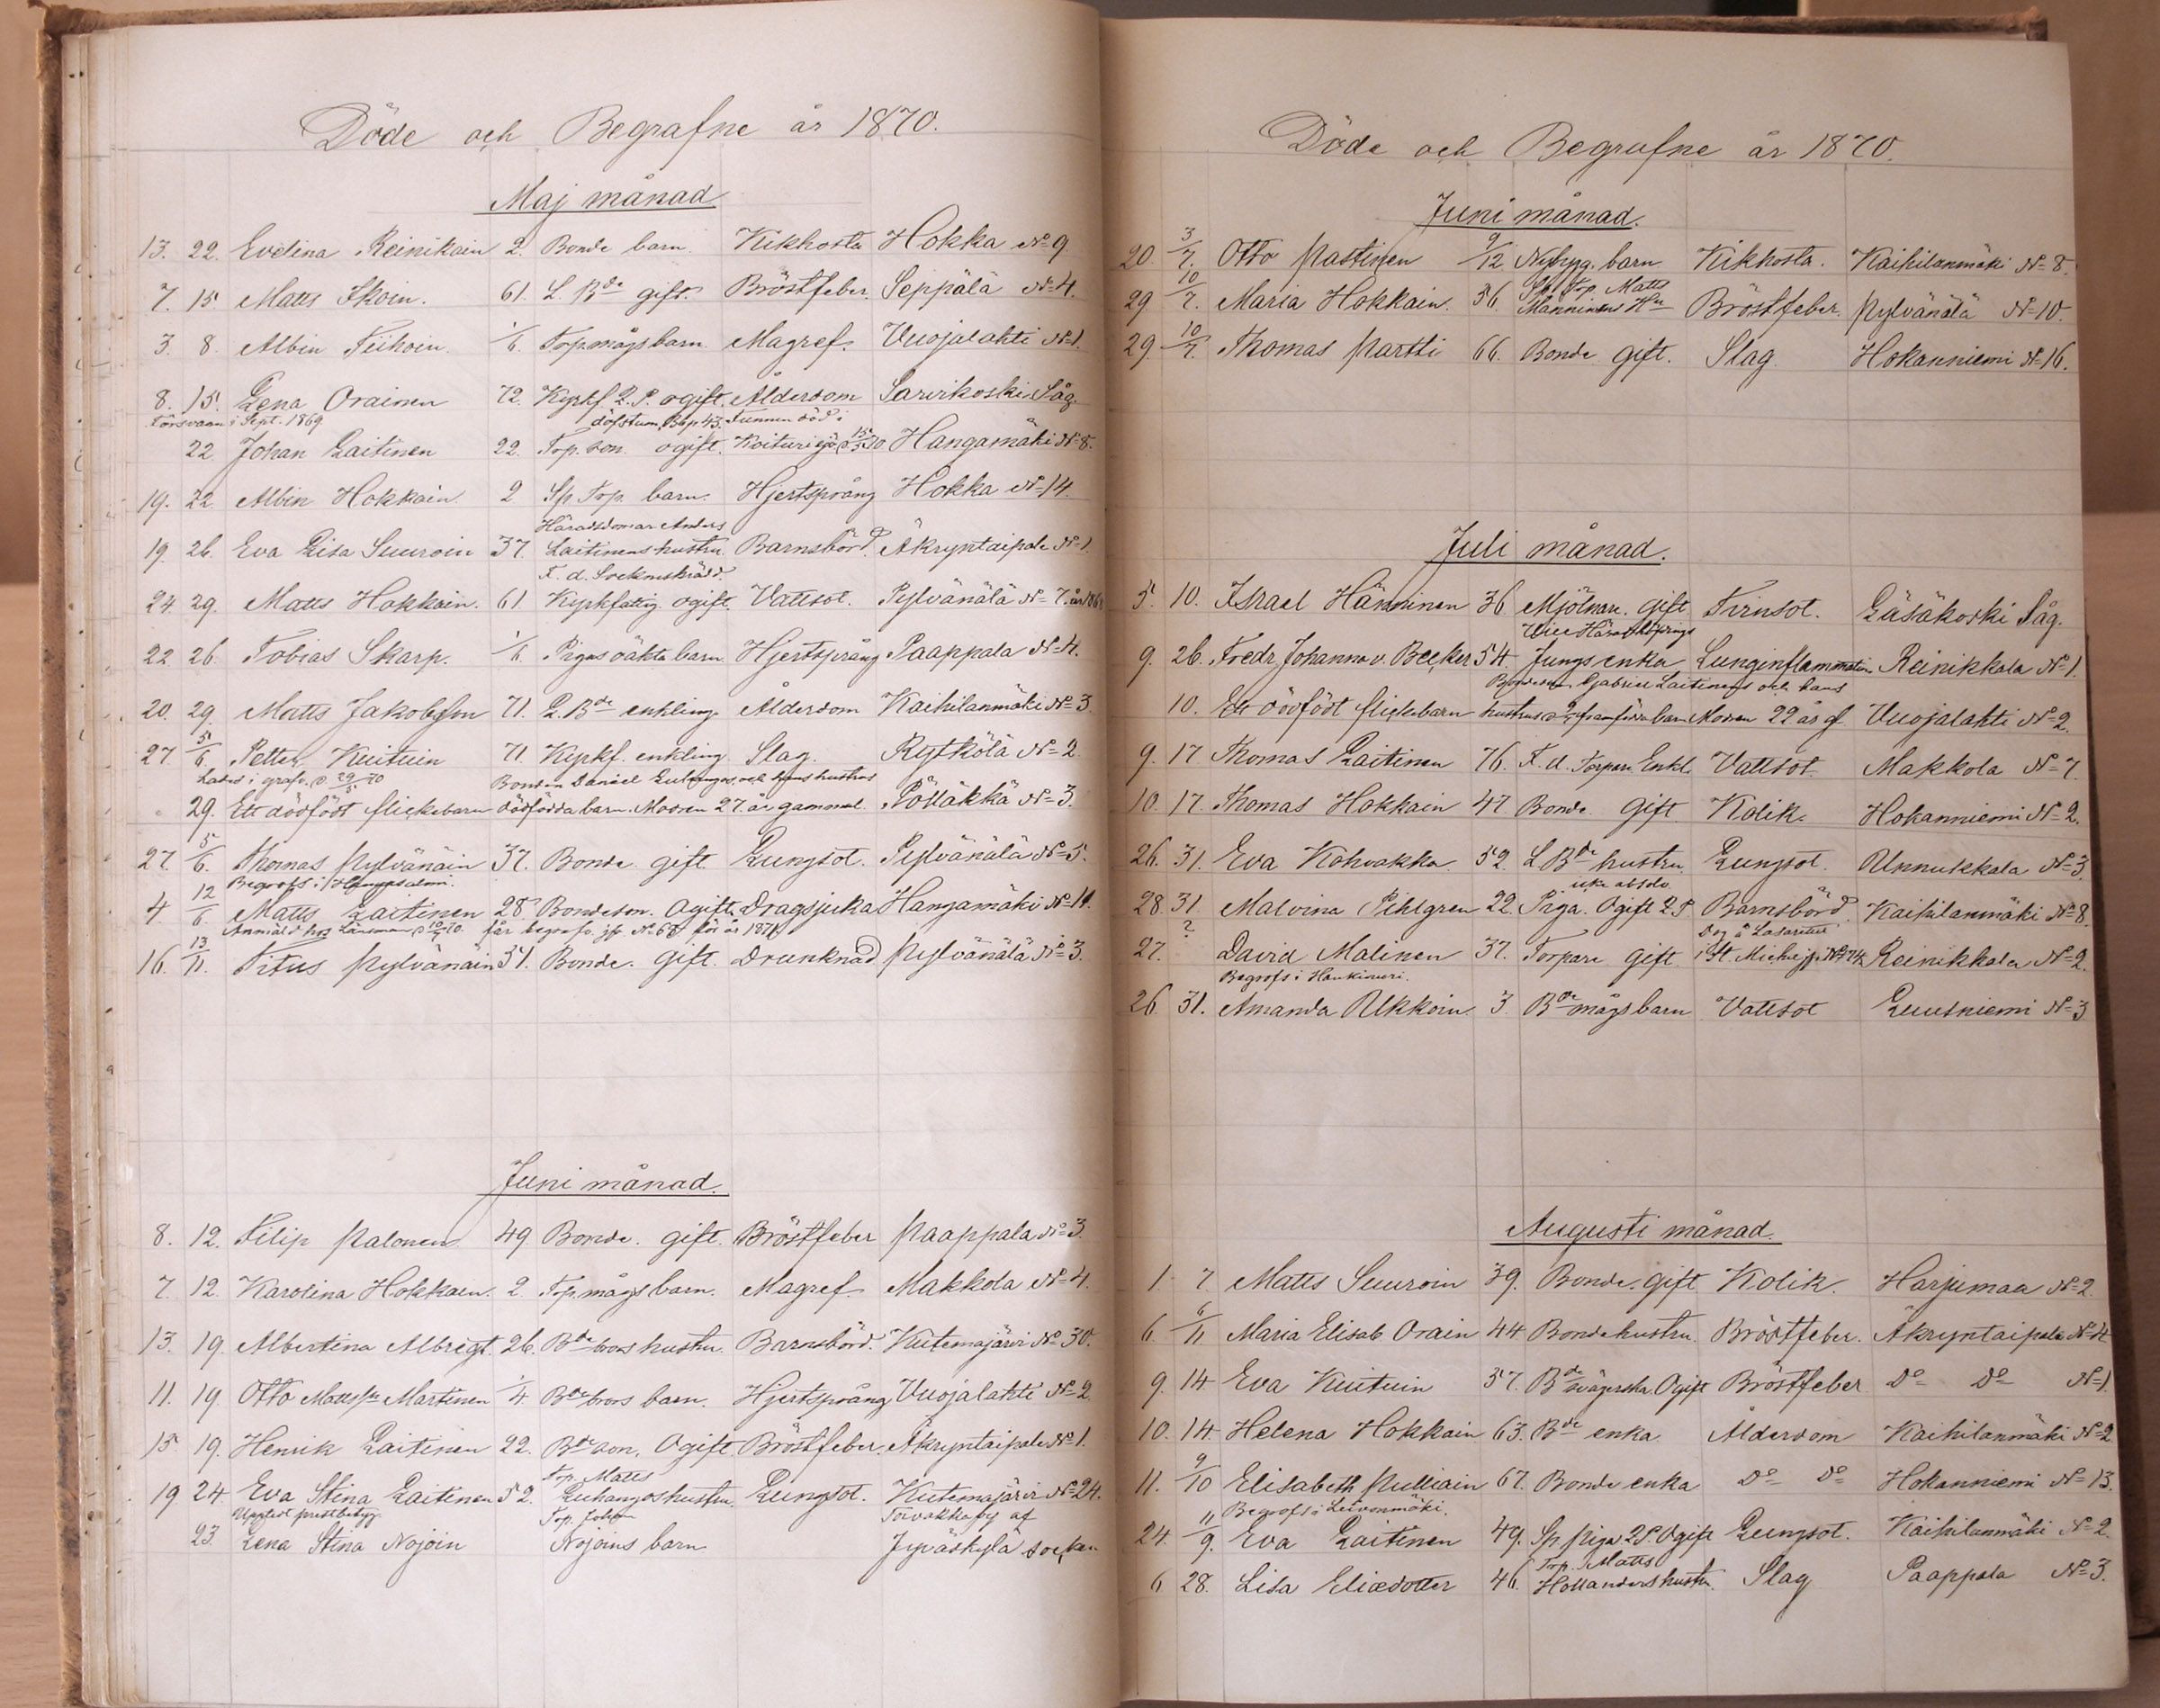 Döde och Begrafne år 1870.
Maj månad
13. 22. Evelina Reinikain 2. Bonde barn Kikhosta Hokka No 9
7. 15. Matts Ikoin. 61. L. Bde gift. Bröstfeber. Seppälä No 4.
3. 8. Albin Tiihoin 1/6. Torpmågs barn. Magref. Vuojalahti No 1.
8. 15. Lena Orainen 72. Kyrkf. 2. S. ogift. Ålderdom Sarvikoski Såg.
Försvann i Sept. 1869 döfstum, Bbp 43. Funnen död i
22. Johan Laitinen 22. Torp. son. ogift. Koiturisjö d 15/5 70. Hangamäki No 8.
19. 22. Albin Hokkain 2 Sp Torp. barn. Hjertsprång Hokka No 14.
Häradsdomar Anders
19. 26. Eva Lisa Suuroin 37. Laitinens hustru. Barnsbörd. Äkryntaipale No 1.
F. d. Socknesträdd.
24. 29. Matts Hokkain. 61 Kyrkfattig. ogift. Vattsot. Pylvänälä No 7. år 186
22. 26. Tobias Skarp. 1/6. Pigas oäkta barn Hjertsprång Paappala No 4.
20. 29. Matts Jakobsson 71. L. Bde enkling. Ålderdom Kaihilanmäki No 3.
27. 5/6. Petter Kuituin 71. Kyrkf. enkling. Slag. Rytkölä No 2.
Lades i graf. d. 29/5 70 Bonden Daniel och hans hustrus
29. Ett dödfödt flickebarn dödfödda barn. Modren 27 år gammal. Pöllákkä No 3.
27. 5/6. Thomas Pylvänäin 37. Bonde gift. Lungsot. Pylvänälä No 5.
Begrofs i
4. 12/6. Matts Laitinen 28. Bondeson. Ogift. Dragsjuka Hangamäki No 11.
Anmäld hos Länsman d. 70. får begrafv. jf. No 68 för år 1870
16. 13/11. Titus Pylvänäin 31. Bonde. gift. Drunknad Pylvänälä No 3.
Juni månad.
8. 12. Filip Palonen 49 Bonde. gift. Bröstfeber Paappala No 3.
7. 12. Karolina Hokkain. 2. Torp. mågs barn. Magref. Makkola No 4.
13. 19. Albertina Albrigt. 26. Bde brors hustru. Barnsbörd. Kutemajärvi No 30.
11. 19. Otto Mattsson Martinen 1/4. Bde brors barn. Hjertsprång Vuojalahti No 2
15 19. Henrik Laitinen 22. Bde son. Ogift. Bröstfeber. Äkryntaipale No 1.
Torp. Matts
19 24 Eva Stina Laitinen 52. Liukangos hustru. Lungsot. Kutemajärvi No 24.
Uppted prestbetyg. Torp. Johan Toivakka by af
23. Lena Stina Nojoin Nojoins barn Jyväskylä socken
Döde och Begrafne år 1870.
Juni månad.
20. 3/7. Otto Pastinen 9/12 Nybygg. barn Kikhosta. Kaihilanmäki No 8.
Sp. Torp. Matts
29 10/7. Maria Hokkain. 36. Manninens Hu Bröstfeber. Pylvänälä No 10.
29. 10/7. Thomas Partti 66. Bonde gift. Slag. Hokanniemi No 16.
Juli månad.
5. 10. Israel Hänninen 36. Mjölnare. gift Tvinsot. Läsäkoski Såg.
Vice Häradshöfdings
9. 26. Fredr. Johanna v. Becker 54. Jungs enka Lunginflammation Reinikkala No 1.
Bondeson Gabriel Laitinens och hans
10. Ett dödfödt flickebarn hustrus framfödda barn Modren 22 år gl. Vuojalahti No 2.
9. 17 Thomas Laitinen 76. F. d. Torpare Enkl. Vattsot Makkola No 7.
10. 17. Thomas Hokkain 47 Bonde gift Kolik. Hokanniemi No 2.
26. 31. Eva Kohvakka 52. L Bde hustru Lungsot. Unnukkala No 3.
icke absolv.
28. 31. Malvina Pihlgren 22. Piga. Ogift 2. S Barnsbörd. Kaihilanmäki No 8.
Dog å Lasarettet
27. ? David Malinen 37. Torpare gift i St. Michel jf. No 74 Reinikkala No 2.
Begrofs i Haukivuori.
26. 31. Amanda Ukkoin. 3. Bde mågs barn Vattsot Luusniemi No 3
Augusti månad.
1. 7. Matts Suuroin 39. Bonde. gift Kolik. Harjumaa No 2.
6. 6/11 Maria Elisab. Orain 44 Bondehustru. Bröstfeber. Äkryntaipale No 4
9. 14 Eva Kuituin 37. Bde svägerska Ogift Bröstfeber Do Do No 1.
10. 14 Helena Hokkain 63. Bde enka Ålderdom Kaihilanmäki No 2
11. 9/10 Elisabeth Pulliain 67. Bonde enka Do Do Hokanniemi No 13.
Begrofs i Leivonmäki.
24. 11/9. Eva Laitinen 49. Sp. Piga 2 S. Ogift Lungsot. Kaihilanmäki No 2.
Torp. Matts
6 28. Lisa Eliædotter 46. Hollanders hustru. Slag Paappala No 3.